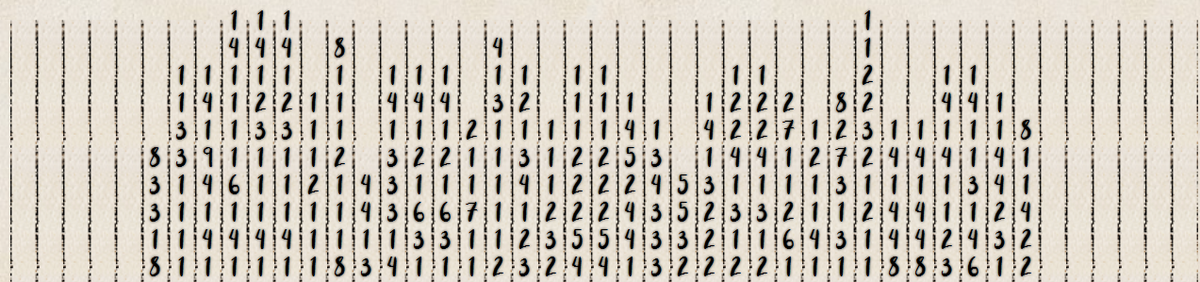 1 1 1 1
4 4 4 8 4 1
1 1 1 1 1 1 1 1 1 1 1 1 1 1 1 2 1 1
1 4 1 2 2 1 1 4 4 4 3 2 1 1 1 1 2 2 2 8 2 4 4 1
3 1 1 3 3 1 1 1 1 1 2 1 1 1 1 1 4 1 4 2 2 7 1 2 3 1 1 1 1 1 8
8 3 9 1 1 1 1 2 3 2 2 1 1 3 1 2 2 5 3 1 4 4 1 2 7 2 4 4 4 1 4 1
3 1 4 6 1 1 2 1 4 3 1 1 1 1 4 1 2 2 2 4 5 3 1 1 1 1 3 1 4 4 1 3 4 1
3 1 1 1 1 1 1 1 4 3 6 6 7 1 1 2 2 2 4 3 5 2 3 3 2 1 1 2 4 4 1 1 2 4
1 1 4 4 4 4 1 1 1 1 3 3 1 1 2 3 5 5 4 3 3 2 1 1 6 4 3 1 4 4 2 4 3 2
8 1 1 1 1 1 1 8 3 4 1 1 1 2 3 2 4 4 1 3 2 2 2 2 1 1 1 1 8 8 3 6 1 2